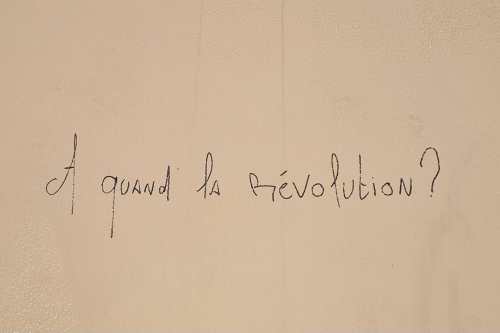 A quand la révolution ?